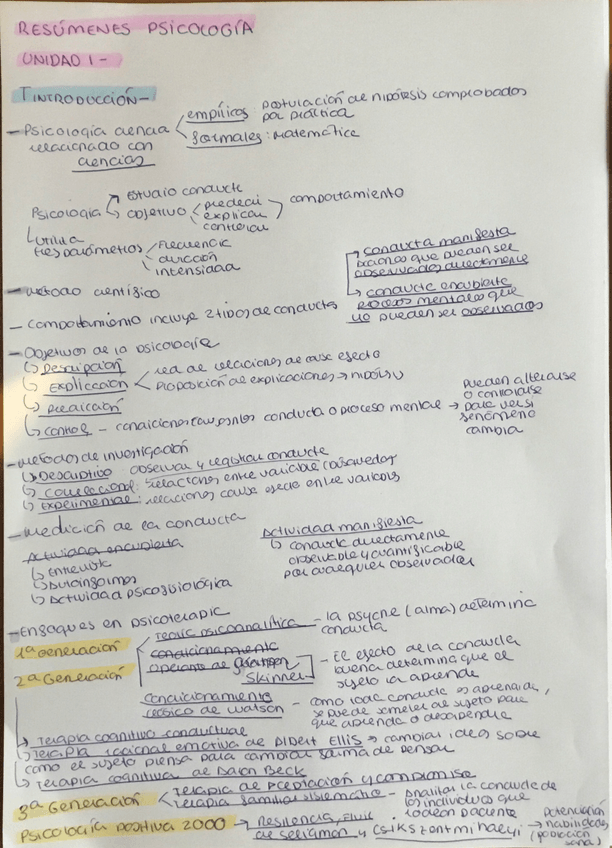 RESÚMENES PSICOLOGÍA
UNIDAD 1-
T INTRODUCCIÓN-
- Psicología ciencia
relacionado con
ciencias
empíricos: postulación de hipótesis comprobados
por práctica
formales: matemática
Psicología
estudio conducta
objetivo
predecir
explicar
controlar
comportamiento
utiliza
tres parámetros
Frecuencia
duración
intensidad
- método científico
- comportamiento incluye 2 tipos de conducta
conducta manifesta
acciones que pueden ser
observadas directamente
conducta encubierta
procesos mentales que
no pueden ser observados
- Objetivos de la psicología
Descripción
Explicación
red de relaciones de causa efecto
proposición de explicaciones → hipótesis
Predicción
control - condiciones conducta o proceso mental →
pueden alterarse
o controlarse
para ver si
fenómeno
cambia
- métodos de investigación
Descriptivo observar y registrar conducta
correlacional: relaciones entre variable
Experimental: relaciones causa efecto entre variables
- medición de la conducta
Actividad encubierta
Entrevista
Autoinformes
Actividad psicofisiológica
Actividad manifiesta
conducta directamente
observable y cuantificable
por cualquier observador
- Enfoques en psicoterapia
1ª Generación
teoría psicoanalítica - la psyche (alma) determina
conducta
2ª Generación
condicionamiento
operante de
Skinner
- El efecto de la conducta
buena determina que el
sujeto la aprende
condicionamiento
clásico de Watson
- como toda conducta es aprendida,
se puede someter al sujeto para
que aprenda o desaprenda
Terapia cognitivo conductual
Terapia racional emotiva de Albert Ellis → cambiar ideas sobre
como el sujeto piensa para cambiar forma de pensar
Terapia cognitiva de Aaron Beck
3ª Generación
Terapia de aceptación y compromiso
Terapia familiar sistemática - analizar la conducta de
los individuos que
rodean paciente
Psicología positiva 2000 →
Resilencia, Fluir
de seligman y csikszentmihalyi →
Potenciación
habilidades
(población
sana)